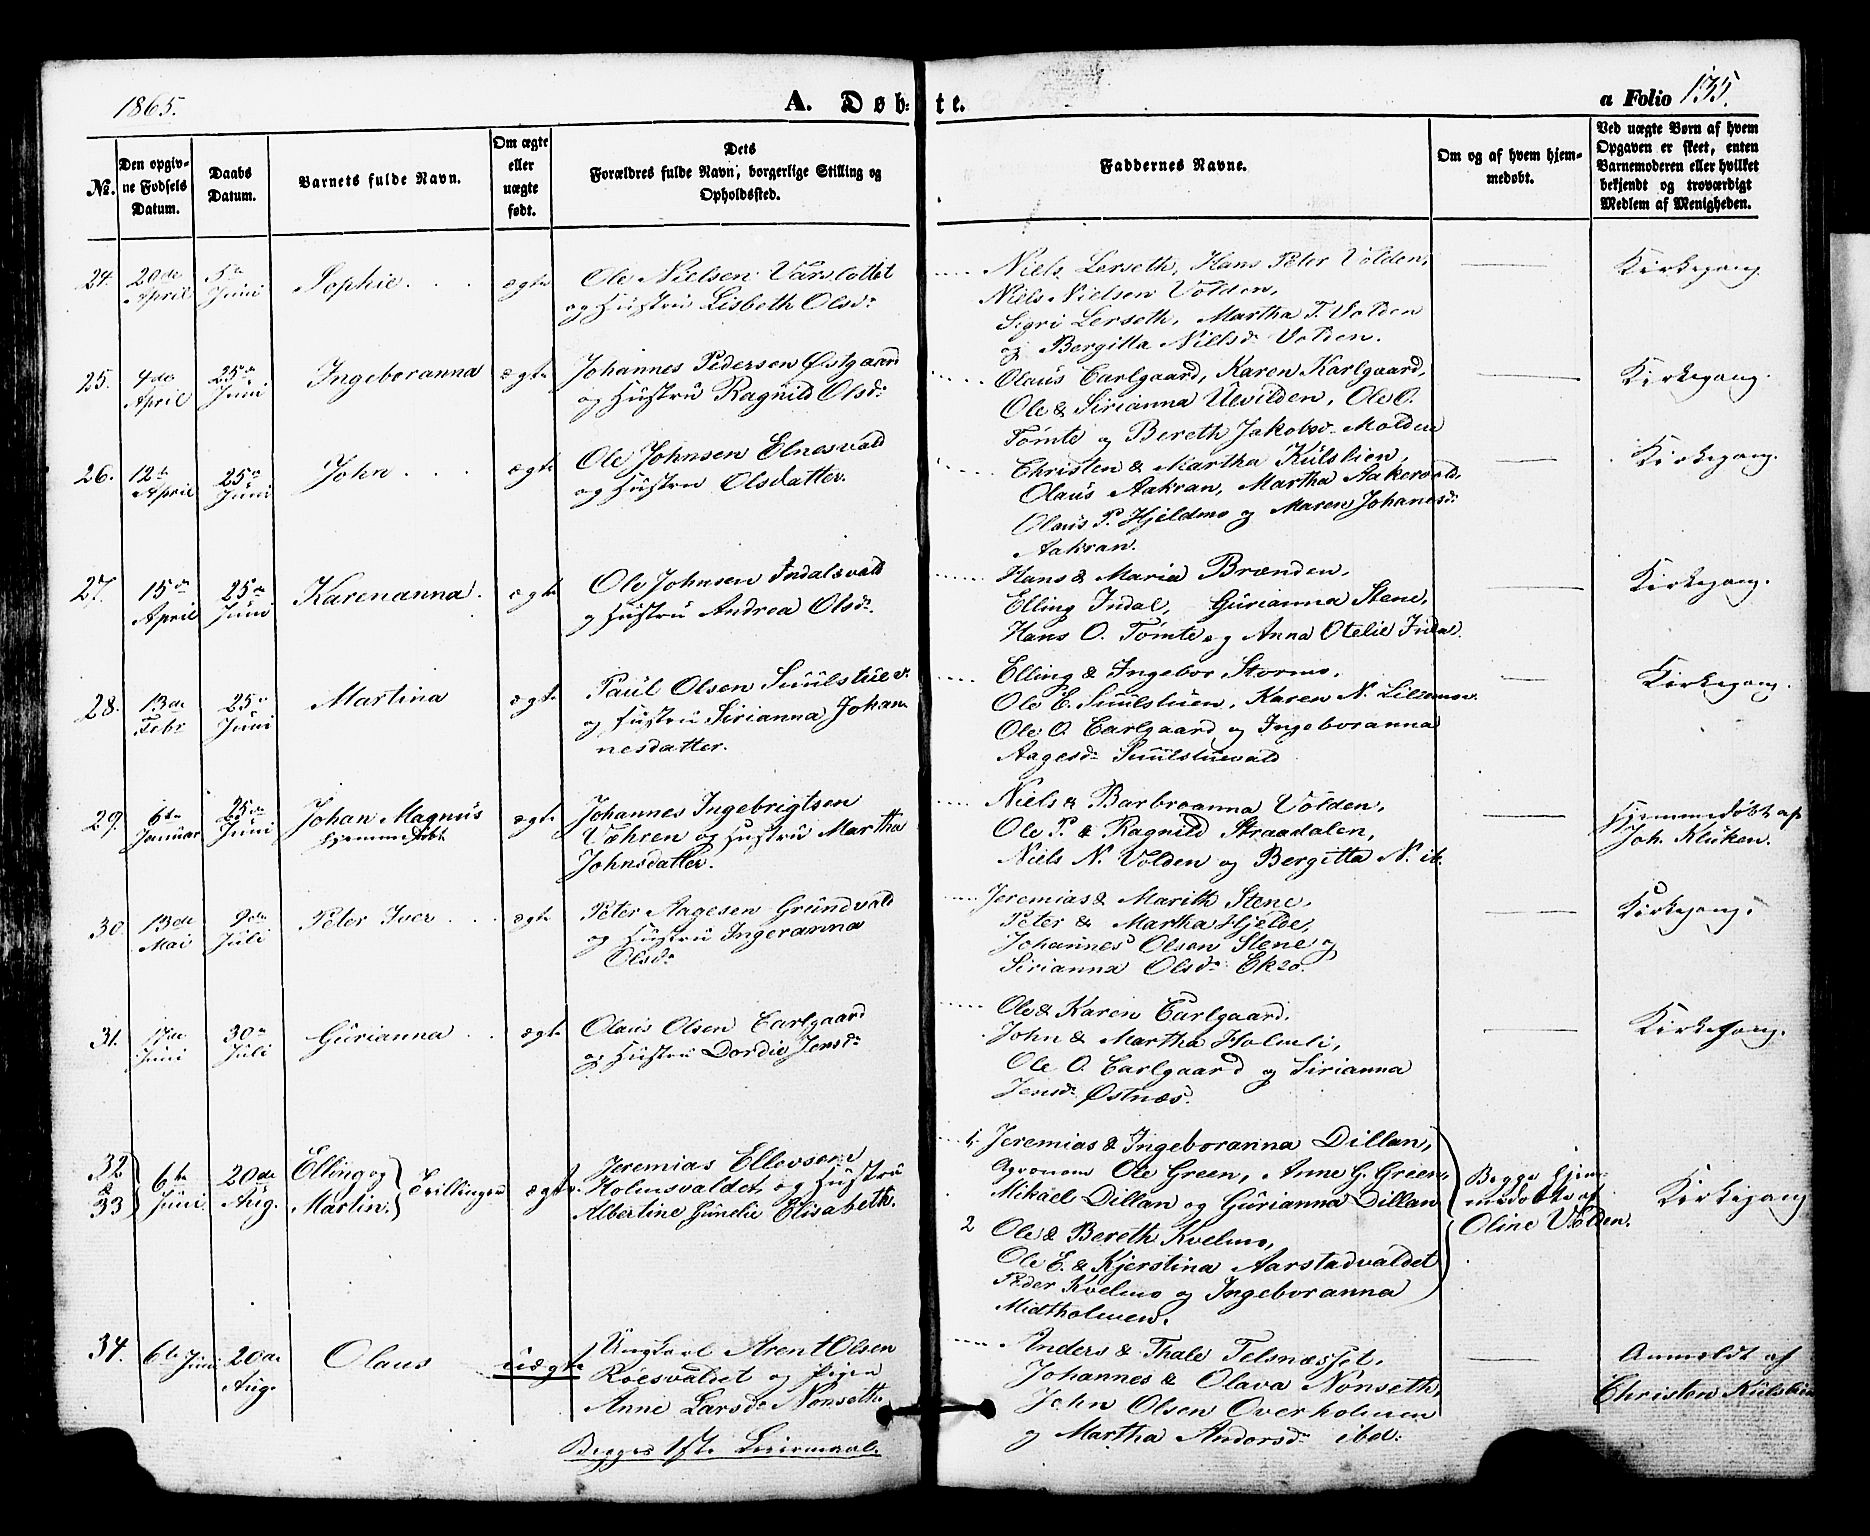 1865.
A. Døbte.
a Folio 135.
No.
Den opgiv-
ne Fødsels
Datum.
Daabs
Datum.
Barnets fulde Navn.
Om ægte
eller
uægte
født.
Dets
Forældres fulde Navn, borgerlige Stilling og
Opholdssted.
Faddernes Navne.
Om og af hvem hjem-
medøbt.
Ved uægte Børn af hvem
Opgaven er skeet, enten
Barnemoderen eller hvilket
bekjendt og troværdigt
Medlem af Menigheden.
24. 20de April 5te Juni Sophie. ægte
Ole Nielsen Varslottet
og Hustru Lisbeth Olsdr
Niels Lerseth, Hans Peter Volden,
Niels Nielsen Volden,
Sigri Lerseth, Martha T. Volden
og Bergitta Nielsdr Volden.
Kirkegang
25. 4de April 25de Juni Ingeboranna ægte
Johannes Pedersen Østgaard
og Hustru Ragnild Olsdr
Olaus Carlgaard, Karen Karlgaard,
Ole & Sirianna Uevilden, Ole O.
Tømte og Bereth Jakobsdr Molden
Kirkegang.
26. 12te April 25de Juni John ægte
Ole Johnsen Elnesvald
og Hustru Olsdatter.
Christen & Martha Kulslien,
Olaus Aakran, Martha Aakervold,
Olaus P. Hjeldmo og Maren Johansdr
Aakran.
Kirkegang.
27. 15de April 25de Juni Karenanna. ægte
Ole Johnsen Indalsvald
og Hustru Andrea Olsdr
Hans & Maria Brænden,
Elling Indal, Gurianna Stene,
Hans O. Tømte og Anna Otelie Indal.
Kirkegang.
28. 13de Febr 25de Juni Martina ægte
Paul Olsen Suulstuev.
og Hustru Sirianna Johan
nesdatter.
Elling & Ingebor Stormo,
Ole E. Suulstuen, Karen N. Lillemo
Ole O. Carlgaard og Ingeboranna
Aagesdr Suulstuevald
Kirkegang.
29. 6te Januar 25de Juni Johan Magnus
hjemmedøbt ægte
Johannes Ingebrigtsen
Væhren og Hustru Martha
Johnsdatter.
Niels & Barbroanna Volden,
Ole P. & Ragnild Straadalen,
Niels N. Volden og Bergitta N. ib.
Hjemmedøbt af
Joh. Kluken.
30. 13de Mai 9de Juli Peter Iver ægte
Peter Aagesen Grundvald
og Hustru Ingeranna
Olsdr
Jeremias & Marith Stene,
Peter & Martha Hjelde,
Johannes Olsen Stene og
Sirianna Olsdr Ekro.
Kirkegang.
31. 17de Juni 30te Juli Gurianna ægte
Olaus Olsen Carlgaard
og Hustru Dordie Jensdr
Ole & Karen Carlgaard.
John & Martha Holmli,
Ole O. Carlgaard og Sirianna
Jensdr Østnæs.
Kirkegang.
32 & 33 6te Juni 20de Aug. Elling og
Martin. Tvillinger ægte
Jeremias Ellevsen
Holmsvaldet og Hustru
Albertine Gunelie Elisabeth.
1. Jeremias & Ingeboranna Dillan,
Agronom Ole Green, Anne G. Green,
Mikael Dillan og Gurianna Dillan
2 Ole & Bereth Kvelmo,
Ole E. & Kjerstina Aarstadvaldet
Peder Kvelmo og Ingeboranna
Midtholmen.
Begge hjem-
medøbte af
Oline Volden.
Kirkegang
34. 6te Juni 20de Aug. Olaus uægte
Ungkarl Arent Olsen
Röesvaldet og Pigen
Anne Larsdr Nonseth.
Begges 1ste Leiermaal.
Anders & Thale Telsnæsset.
Johannes & Olava Nonseth,
John Olsen Overholmen
og Martha Andersdr ibd.
Anmeldt af
Christen Kulslien